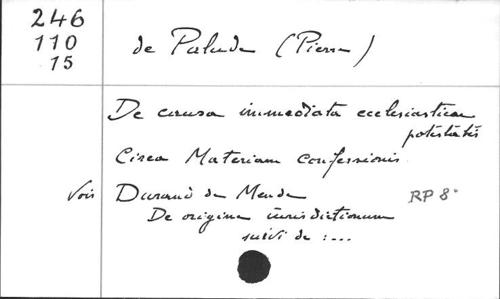 246
110
15
de Palude (Pierre)
De causa immediata ecclesiasticae
potestatis
Circa Materiam confessionis
Voir Durand de Mende RP 8°
De origine iurisdictionum
suivi de : ...